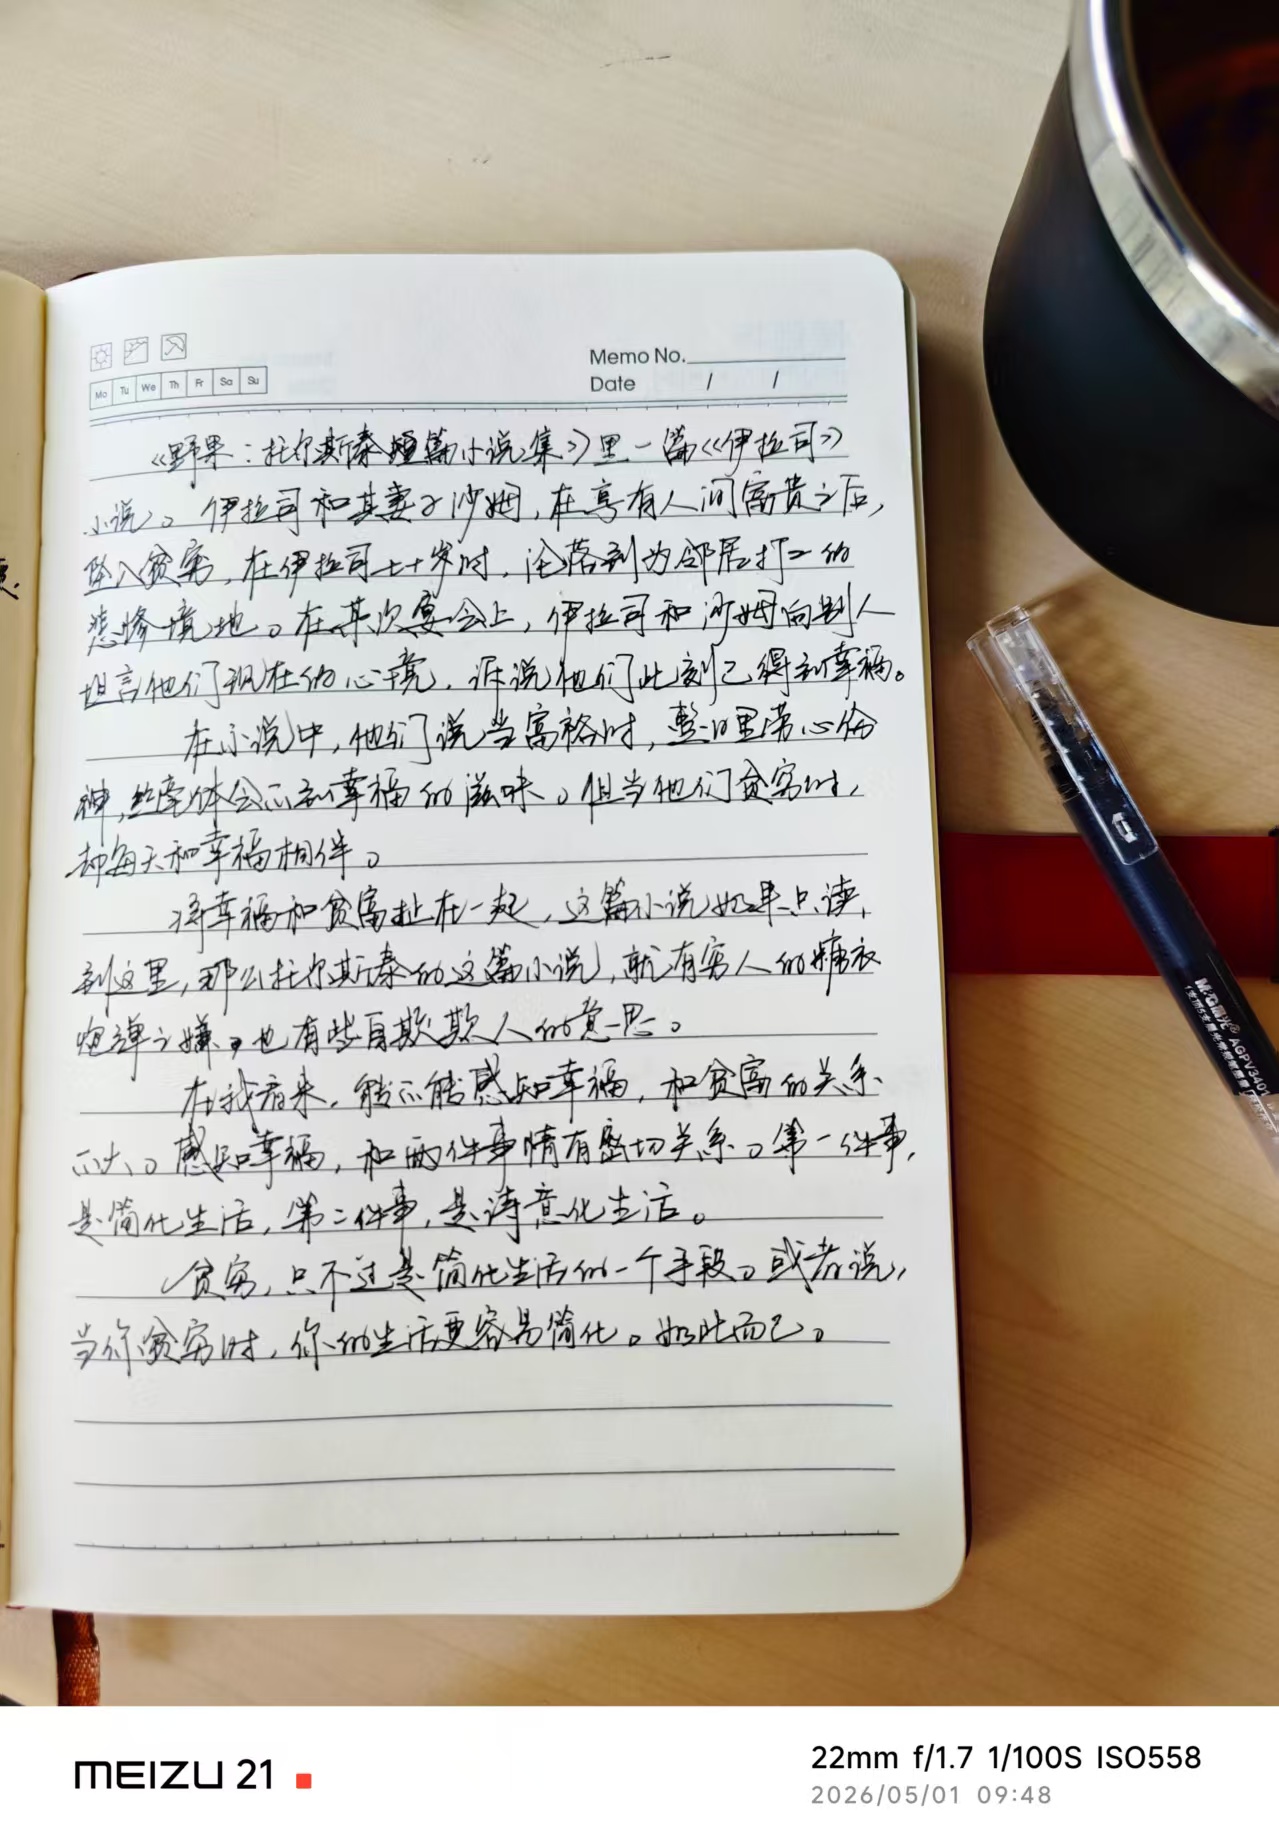 Memo No.
Date / /
Mo Tu We Th Fr Sa Su
《野果：托尔斯泰短篇小说集》里一篇《伊拉司》
小说。伊拉司和其妻子沙姆，在享有人间富贵之后，
坠入贫穷，在伊拉司七十岁时，沦落到为邻居打工的
悲惨境地。在某次宴会上，伊拉司和沙姆向别人
坦言他们现在的心境，诉说他们此刻已得到幸福。
在小说中，他们说当富裕时，整日里劳心伤
神，丝毫体会不到幸福的滋味。但当他们贫穷时，
却每天和幸福相伴。
将幸福和贫富扯在一起，这篇小说如果只读
到这里，那么托尔斯泰的这篇小说，就有穷人的糖衣
炮弹之嫌，也有些自欺欺人的意思。
在我看来，能不能感知幸福，和贫富的关系
不大。感知幸福，和两件事情有密切关系。第一件事，
是简化生活，第二件事，是诗意化生活。
贫穷，只不过是简化生活的一个手段。或者说，
当你贫穷时，你的生活更容易简化。如此而已。
M&G晨光 AGPV3401
MEIZU 21
22mm f/1.7 1/100S ISO558
2026/05/01 09:48